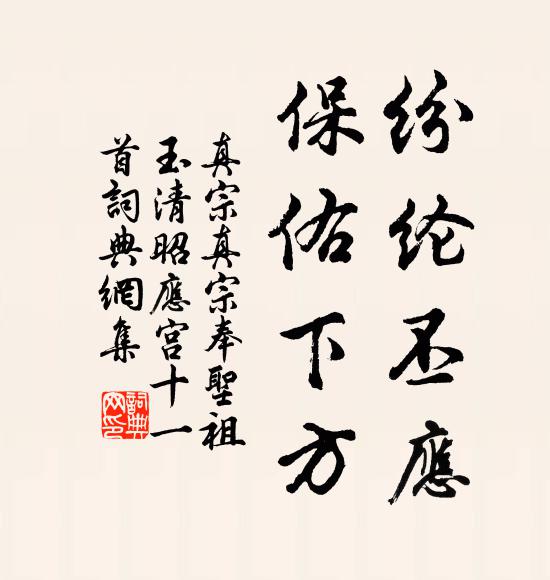 纷纶丕應
保佑下方
真宗真宗奉聖祖
玉清昭應宫十一
首詞典網集
詞典网印